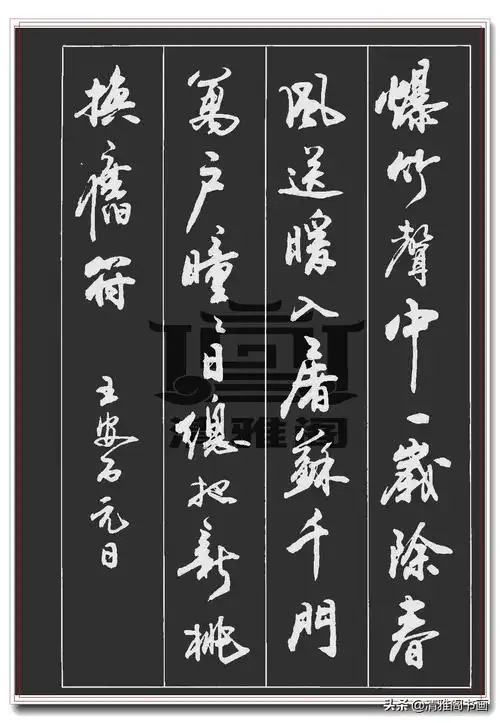 爆竹聲中一歲除春
風送暖入屠蘇千門
萬戶曈〻日總把新桃
換舊符
王安石元日
清雅阁
头条@清雅阁书画